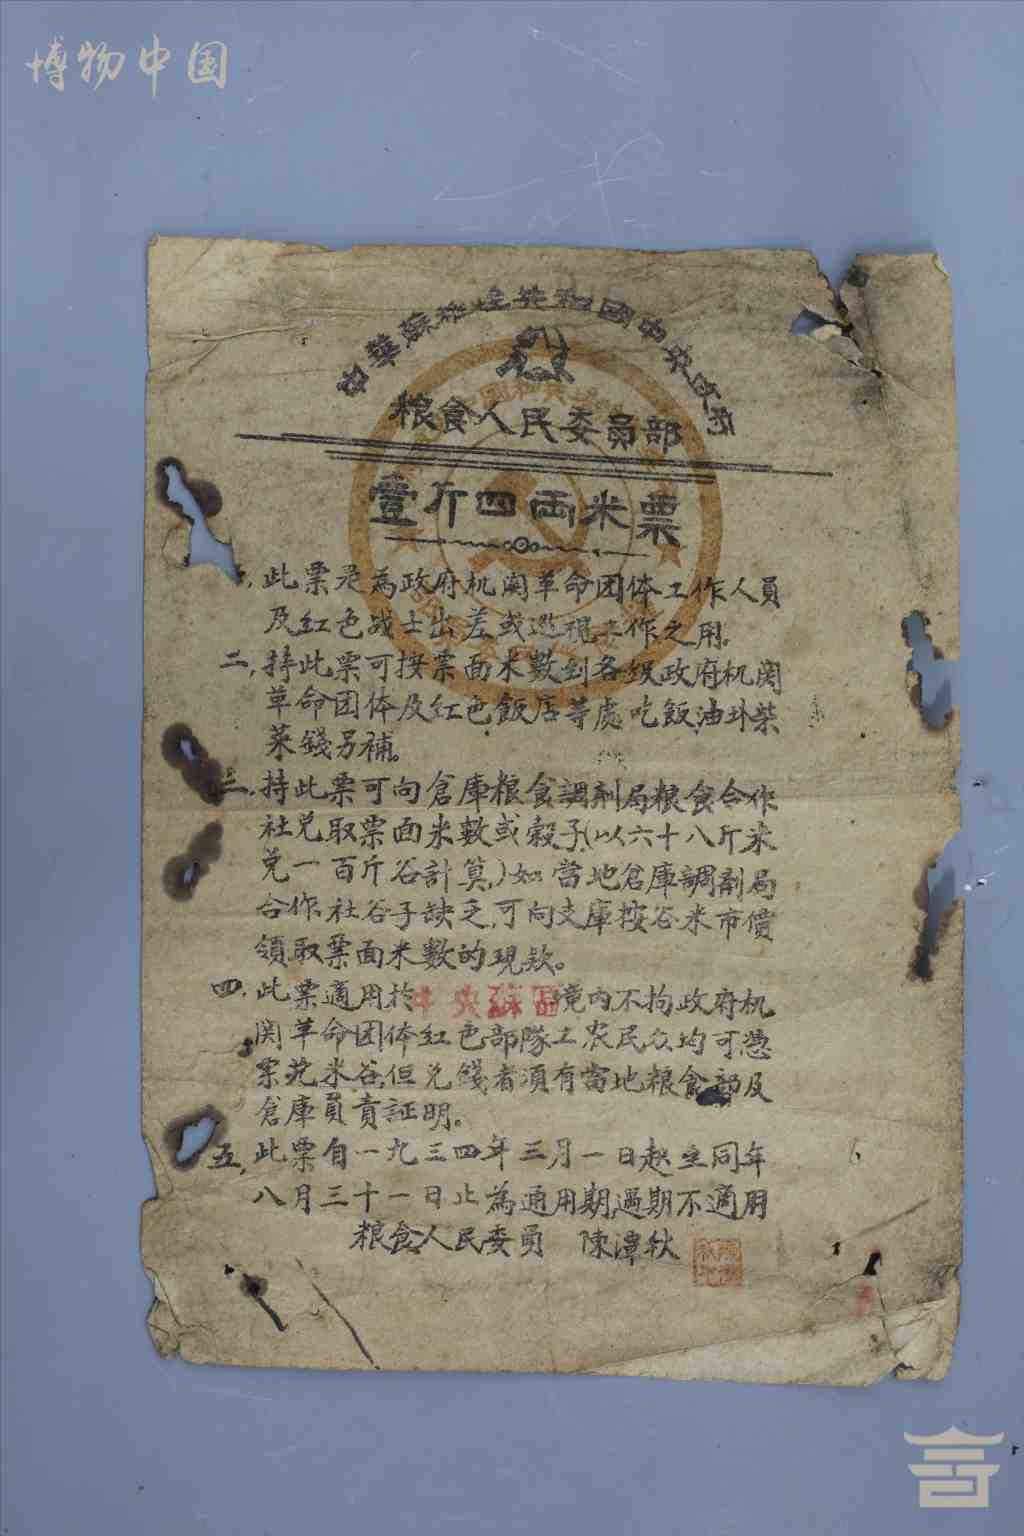 博物中国
中華蘇維埃共和國中央政府
粮食人民委員部
壹斤四両米票
一,此票是為政府机関革命团体工作人員
及紅色战士出差或巡視工作之用。
二,持此票可按票面米數到各級政府机関
革命团体及紅色飯店等處吃飯,油外柴
菜錢另補。
三,持此票可向倉庫粮食調剤局粮食合作
社兑取票面米數或穀子(以六十八斤米
兑一百斤谷計算,)如當地倉庫調剤局
合作社谷子缺乏,可向支庫按谷米市價
領取票面米數的現欵。
四,此票適用扵中央蘇區境內不拘政府机
関革命团体紅色部隊工农民众均可憑
票兑米谷,但兑錢者須有當地粮食部及
倉庫負責証明。
五,此票自一九三四年三月一日起至同年
八月三十一日止為通用期,過期不適用
粮食人民委員 陳潭秋